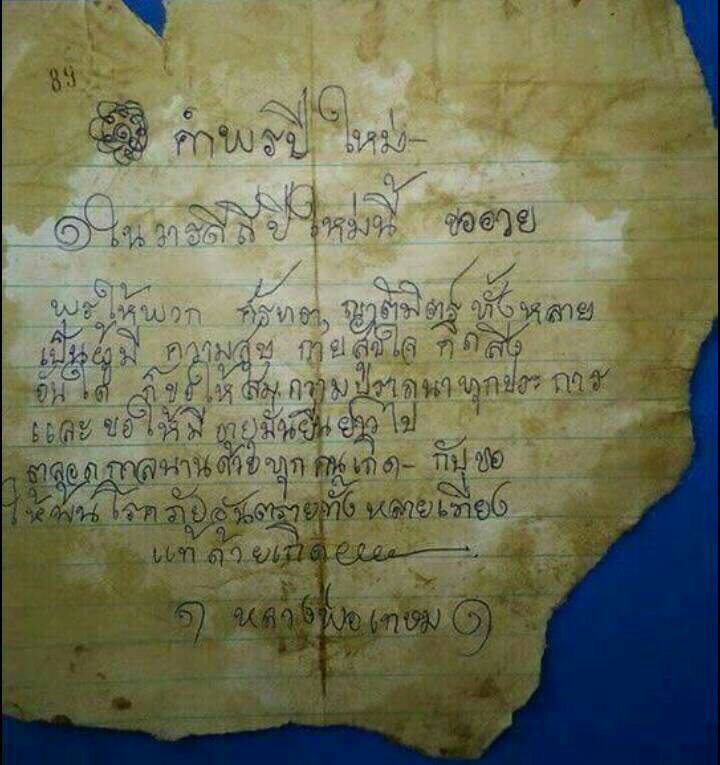 89
๑ คำพรปีใหม่-
๑ ในวารดิถีปีใหม่นี้ ขออวย
พรให้พวก ศรัทธา, ญาติมิตร ทั้งหลาย
เป็นผู้มี ความสุข กายสุขใจ คิดสิ่ง
อันใด ก็ขอให้สมความปรารถนาทุกประการ
และ ขอให้มี อายุมั่นยืนยาวไป
ตลอดกาลนานด้วยทุกคนเถิด- กับขอ
ให้พ้นโรคภัยอันตรายทั้งหลายเที่ยง
แท้ด้วยเถิด
๑ หลวงพ่อเกษม ๑